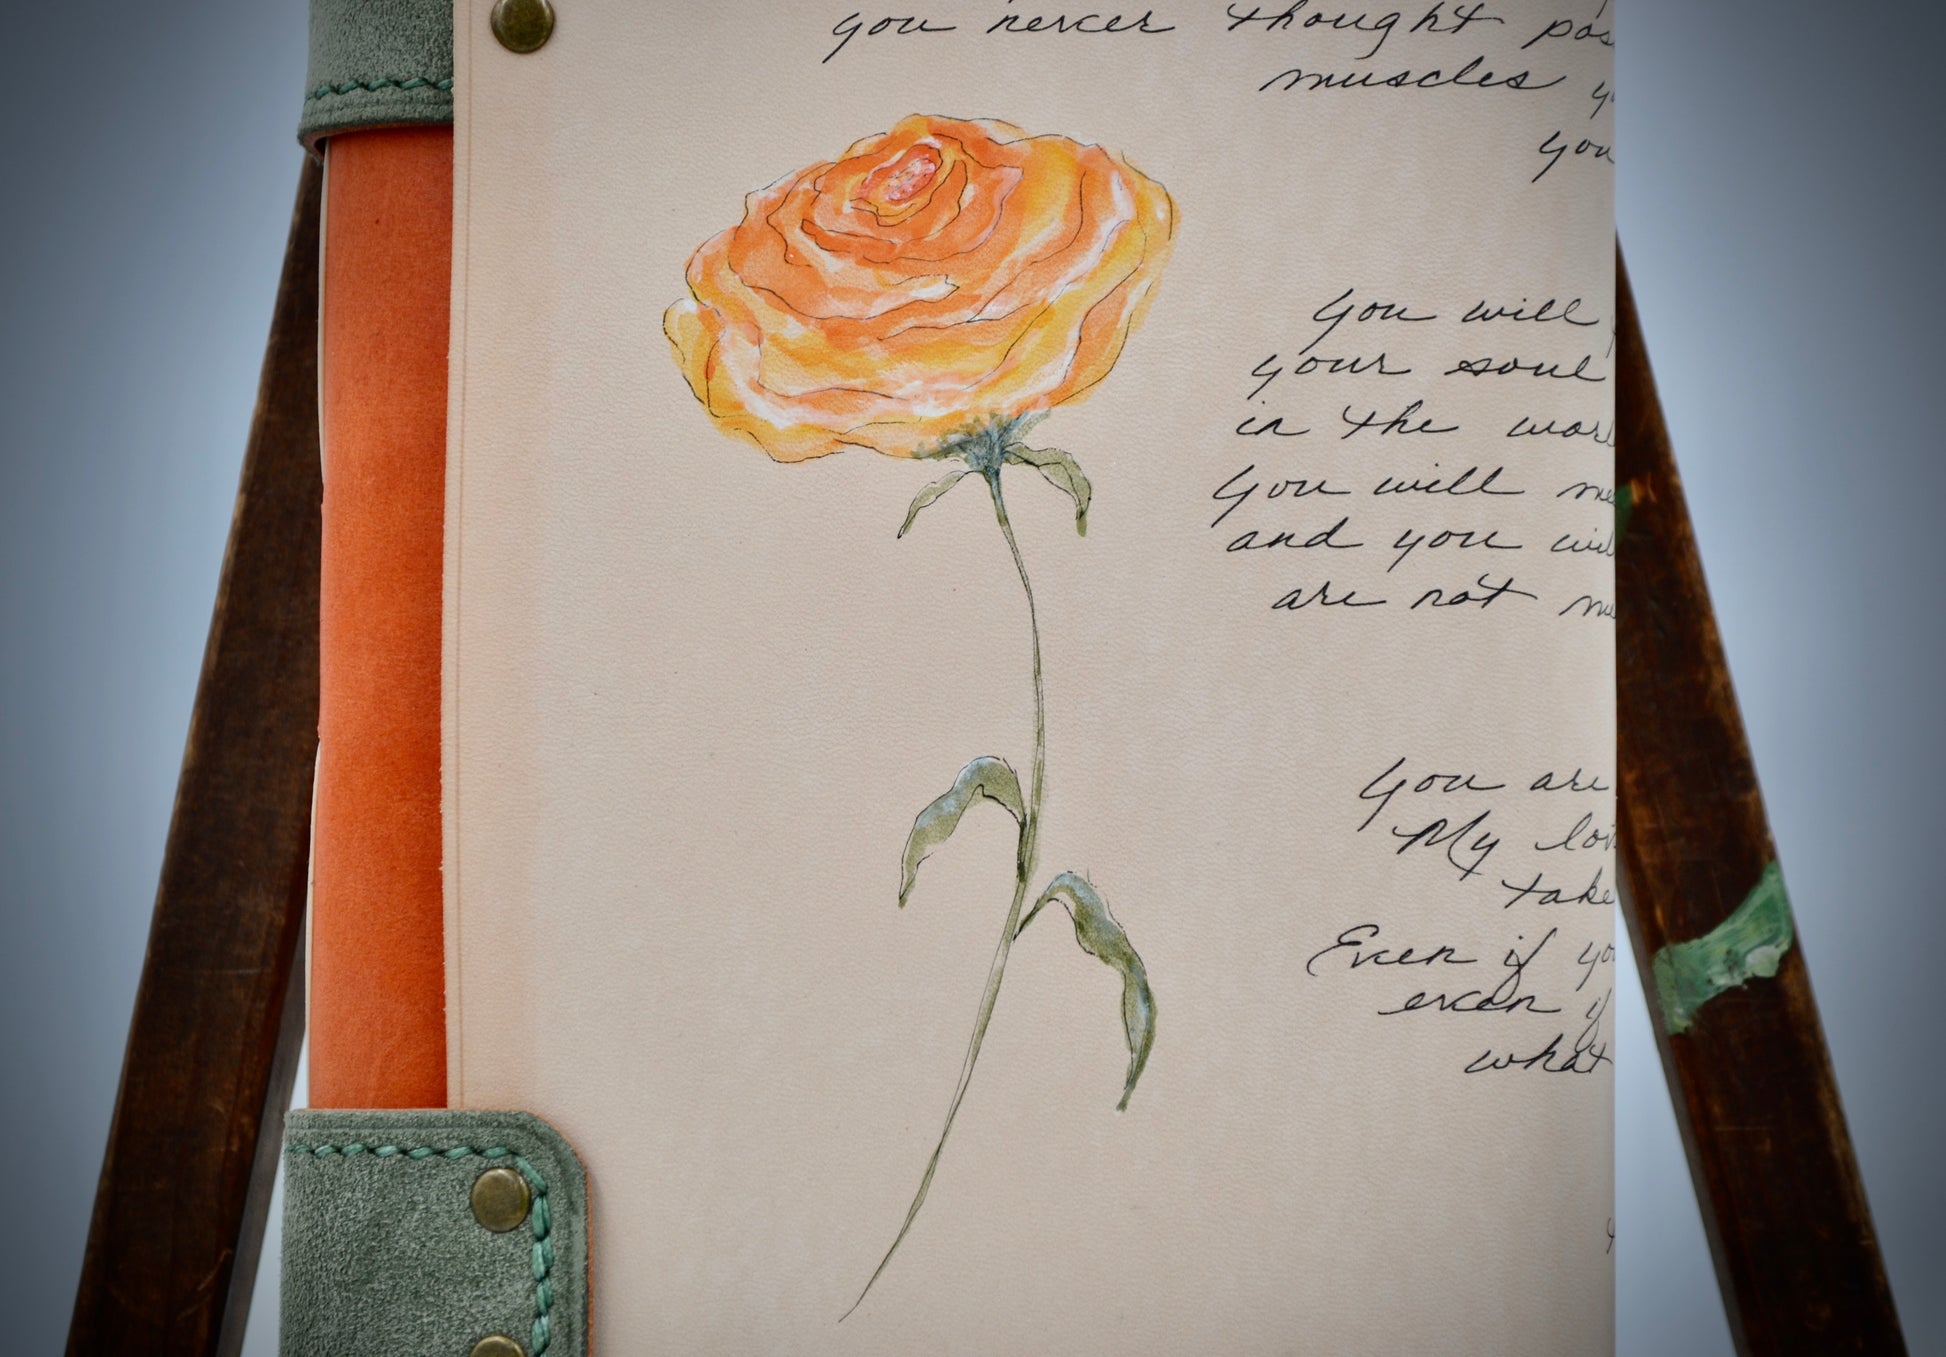 you never thought pos
muscles y
you
You will
your soul
in the worl
You will me
and you wil
are not me
You are
My lov
take
Even if yo
even if
what